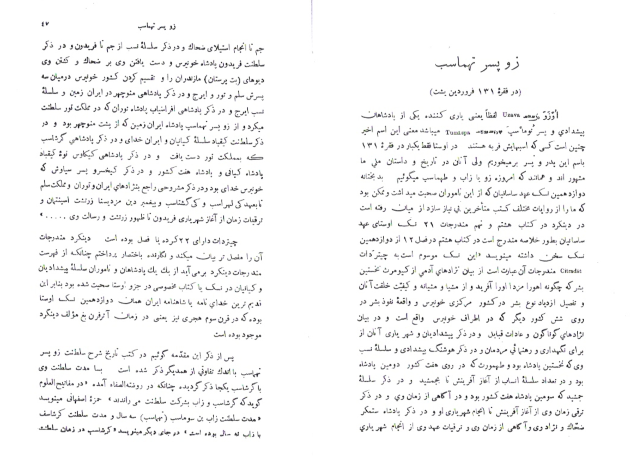 زو پسر تهماسب
(در فقرهٔ ۱۳۱ فروردین یشت)
Uzava لفظاً یعنی یاری کننده یکی از پادشاهان
پیشدادی و پسر Tumāspa میباشد معنی این اسم اخیر
چنین است کسی که اسبهایش فربه هستند در اوستا فقط یکبار در فقرهٔ ۱۳۱
باسم این پدر و پسر برمیخوریم ولی آنان در تاریخ و داستان ملی ما
مشهور اند و همانند که امروزه زو یا زاب و طهماسب میگوئیم بدبختانه
دوازدهمین نسک عهد ساسانیان که در آن از این ناموران صحبت میشد
که ما را از روایات مختلف کتب متأخرین بی نیاز سازد از میان رفته است
در دینکرد در کتاب هشتم و نهم مندرجات ۲۱ نسک اوستای عهد
ساسانیان بطور خلاصه مندرج است در کتاب هشتم در فصل ۱۲ از دوازدهمین
نسک سخن داشته مینویسد «این نسک موسوم است به چیتردات
Citradat مندرجات آن عبارت است از بیان نژادهای آدمی از کیومرث نخستین
بشر که چگونه اهورا مزدا اورا آفرید و از مشیا و مشیانه و کیفیّت خلقت آنان
و تفصیل ازدیاد نوع بشر در کشور مرکزی خونیرس و واقعهٔ نفوذ بشر در
روی شش کشور دیگر که در اطراف خونیرس واقع است و در بیان
نژادهای گوناگون و عادات قبایل و در ذکر پیشدادیان و شهریاری آنان از
برای نگهداری و رهنمائی مردمان و در ذکر هوشنگ پیشدادی و سلسلهٔ نسب
وی که نخستین پادشاه بود و طهمورث که در روی هفت کشور دومین پادشاه
بود و در تعداد سلسلهٔ انساب از آغاز آفرینش تا بجمشید و در ذکر سلسلهٔ
جمشید که سومین پادشاه هفت کشور بود و در آگاهی از زمان وی و در ذکر
ترقی زمان وی از آغاز آفرینش تا انجام شهریاری او و در ذکر پادشاه ستمگر
ضحّاک و نژاد وی و آگاهی از زمان وی و ترقیات عهد وی از انجام شهریاری
زو پسر تهماسب ٤٧
جم تا انجام استیلای ضحاک و در ذکر سلسلهٔ نسب از جم تا فریدون و در ذکر
سلطنت فریدون پادشاه خونیرس و دست یافتن وی بر ضحاک و کشتن وی
دیوهای (بت پرستان) مازندران را و تقسیم کردن کشور خونیرس درمیان سه
پسرش سلم و تور و ایرج و در ذکر پادشاهی منوچهر در ایران زمین و سلسلهٔ
نسب ایرج و در ذکر پادشاهی افراسیاب پادشاه توران که در مملکت تور سلطنت
میکرد و از زو پسر تهماسب پادشاه ایران زمین که از پشت منوچهر بود و در
ذکر سلطنت کیقباد سلسلهٔ کیانیان و ایران خدای و در ذکر پادشاهی گرشاسب
که بمملکت تور دست یافت و در ذکر پادشاهی کیکاوس نوهٔ کیقباد
پادشاه کیانی و پادشاه هفت کشور و در ذکر کیخسرو پسر سیاوش که
خونیرس خدای بود و در ذکر مشروحی راجع بنژادهای ایران و توران و مملکت سلم
تا بعهد کی لهراسب و کی گشتاسب و پیغمبر دین مزدیسنا زرتشت اسپنتمان و
ترقیات زمان از آغاز شهریاری فریدون تا ظهور زرتشت و رسالت وی .....»
چیتردات دارای ۲۲ کرده یا فصل بوده است دینکرد مندرجات
آن را مفصل تر بیان میکند و نگارنده باختصار پرداختم چنانکه از فهرست
مندرجات دینکرد بر می آید از یک یک پادشاهان و ناموران سلسلهٔ پیشدادیان
و کیانیان در نسک یا کتاب مخصوصی در جزو اوستا صحبت شده بود بنابر این
قدیم ترین خدای نامه یا شاهنامه ایران همان دوازدهمین نسک اوستا
بوده که در قرن سوم هجری نیز یعنی در زمان آترفرن بغ مؤلف دینکرد
موجود بوده است
پس از ذکر این مقدّمه گوئیم در کتب تاریخ شرح سلطنت زو پسر
تهماسب با اندک تفاوتی از همدیگر ذکر شده است بسا مدت سلطنت وی
با گرشاسب یکجا ذکر گردیده چنانکه در روضةالصفاء آمده «در مفاتیح العلوم
گوید که گرشاسب و زاب بشرکت سلطنت می راندند» حمزهٔ اصفهانی مینویسد
«مدت سلطنت زاب بن سوماسب (تهماسب) سه سال و مدت سلطنت کرشاسف
با زاب نه سال بوده است» در جای دیگر مینویسد «گرشاسب در زمان سلطنت